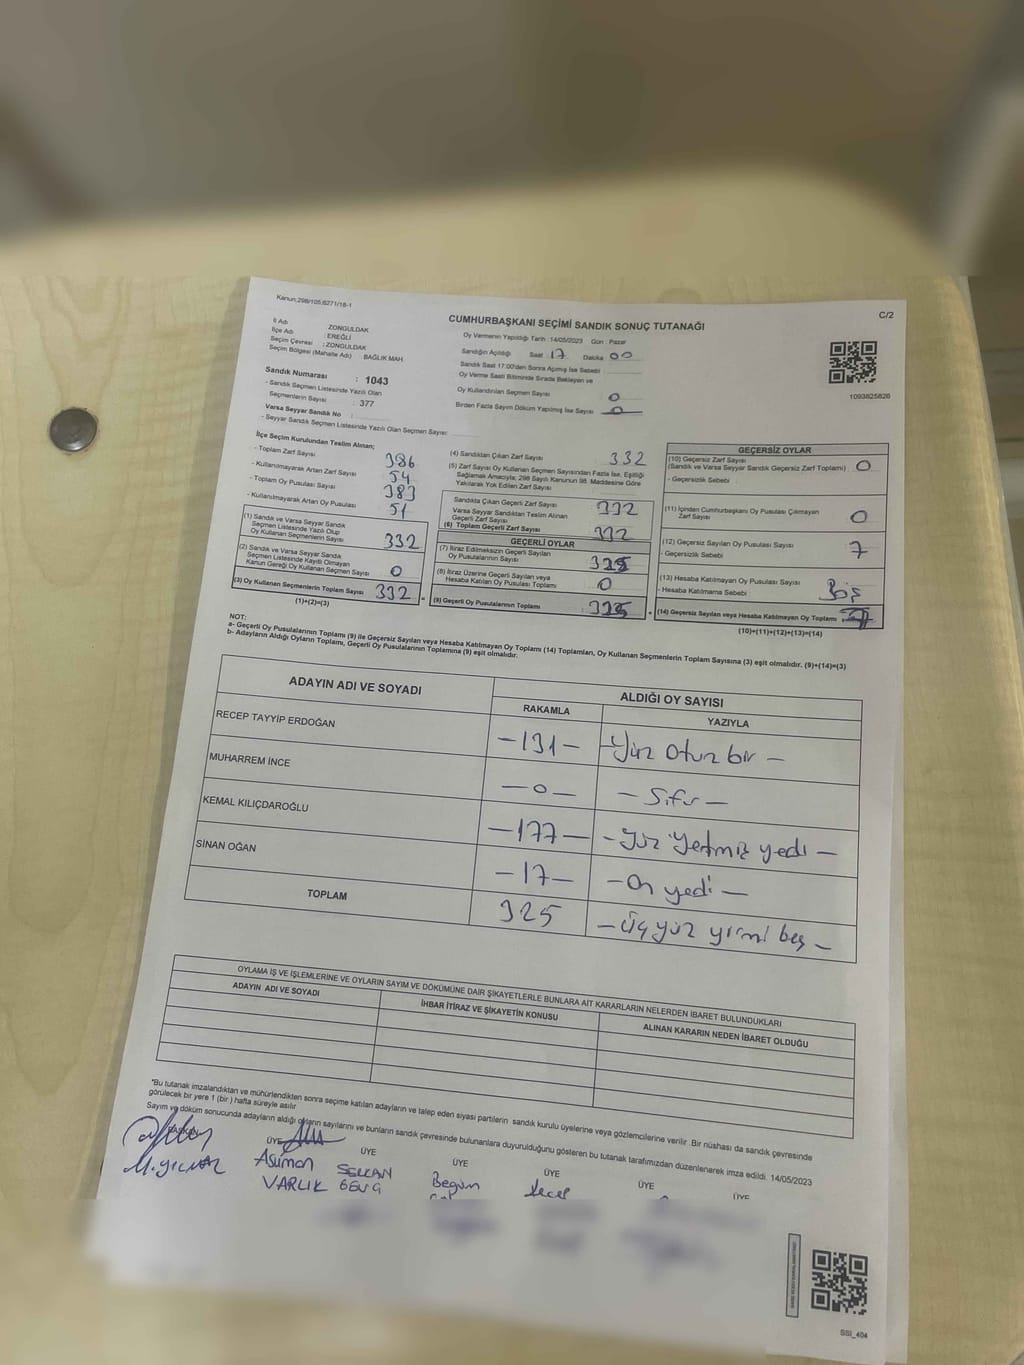 Kanun:298/105,6271/18-1
C/2
CUMHURBAŞKANI SEÇİMİ SANDIK SONUÇ TUTANAĞI
İl Adı : ZONGULDAK
İlçe Adı : EREĞLİ
Seçim Çevresi : ZONGULDAK
Seçim Bölgesi (Mahalle Adı) : BAĞLIK MAH
Sandık Numarası : 1043
- Sandık Seçmen Listesinde Yazılı Olan
Seçmenlerin Sayısı : 377
Varsa Seyyar Sandık No :
- Seyyar Sandık Seçmen Listesinde Yazılı Olan Seçmen Sayısı:
Oy Vermenin Yapıldığı Tarih :14/05/2023 Gün : Pazar
Sandığın Açıldığı Saat 17 Dakika 00
Sandık Saat 17:00'den Sonra Açılmış İse Sebebi
Oy Verme Saati Bitiminde Sırada Bekleyen ve
Oy Kullandırılan Seçmen Sayısı 0
Birden Fazla Sayım Döküm Yapılmış İse Sayısı 0
1093825826
İlçe Seçim Kurulundan Teslim Alınan;
- Toplam Zarf Sayısı 386
- Kullanılmayarak Artan Zarf Sayısı 54
- Toplam Oy Pusulası Sayısı 383
- Kullanılmayarak Artan Oy Pusulası 51
(1) Sandık ve Varsa Seyyar Sandık
Seçmen Listesinde Yazılı Olup
Oy Kullanan Seçmenlerin Sayısı 332
(2) Sandık ve Varsa Seyyar Sandık
Seçmen Listesinde Kayıtlı Olmayan
Kanun Gereği Oy Kullanan Seçmen Sayısı 0
(3) Oy Kullanan Seçmenlerin Toplam Sayısı 332 =
(1)+(2)=(3)
(4) Sandıktan Çıkan Zarf Sayısı 332
(5) Zarf Sayısı Oy Kullanan Seçmen Sayısından Fazla İse, Eşitliği
Sağlamak Amacıyla; 298 Sayılı Kanunun 98. Maddesine Göre
Yakılarak Yok Edilen Zarf Sayısı
Sandıkta Çıkan Geçerli Zarf Sayısı 332
Varsa Seyyar Sandıktan Teslim Alınan
Geçerli Zarf Sayısı
(6) Toplam Geçerli Zarf Sayısı 332
GEÇERLİ OYLAR
(7) İtiraz Edilmeksizin Geçerli Sayılan
Oy Pusulalarının Sayısı 325
(8) İtiraz Üzerine Geçerli Sayılan veya
Hesaba Katılan Oy Pusulası Toplamı 0
(9) Geçerli Oy Pusulalarının Toplamı 325 +
GEÇERSİZ OYLAR
(10) Geçersiz Zarf Sayısı
(Sandık ve Varsa Seyyar Sandık Geçersiz Zarf Toplamı) 0
- Geçersizlik Sebebi
(11) İçinden Cumhurbaşkanı Oy Pusulası Çıkmayan
Zarf Sayısı 0
(12) Geçersiz Sayılan Oy Pusulası Sayısı 7
- Geçersizlik Sebebi
(13) Hesaba Katılmayan Oy Pusulası Sayısı
- Hesaba Katılmama Sebebi
(14) Geçersiz Sayılan veya Hesaba Katılmayan Oy Toplamı
(10)+(11)+(12)+(13)=(14)
NOT:
a- Geçerli Oy Pusulalarının Toplamı (9) ile Geçersiz Sayılan veya Hesaba Katılmayan Oy Toplamı (14) Toplamları, Oy Kullanan Seçmenlerin Toplam Sayısına (3) eşit olmalıdır. (9)+(14)=(3)
b- Adayların Aldığı Oyların Toplamı, Geçerli Oy Pusulalarının Toplamına (9) eşit olmalıdır.
ADAYIN ADI VE SOYADI ALDIĞI OY SAYISI
RAKAMLA YAZIYLA
RECEP TAYYİP ERDOĞAN -131- -Yüz Otuz bir-
MUHARREM İNCE -0- -Sıfır-
KEMAL KILIÇDAROĞLU -177- -Yüz Yetmiş yedi-
SİNAN OĞAN -17- -On yedi-
TOPLAM 325 -Üç yüz yirmi beş-
OYLAMA İŞ VE İŞLEMLERİNE VE OYLARIN SAYIM VE DÖKÜMÜNE DAİR ŞİKAYETLERLE BUNLARA AİT KARARLARIN NELERDEN İBARET BULUNDUKLARI
ADAYIN ADI VE SOYADI İHBAR İTİRAZ VE ŞİKAYETİN KONUSU ALINAN KARARIN NEDEN İBARET OLDUĞU
"Bu tutanak imzalandıktan ve mühürlendikten sonra seçime katılan adayların ve talep eden siyasi partilerin sandık kurulu üyelerine veya gözlemcilerine verilir. Bir nüshası da sandık çevresinde
görülecek bir yere 1 (bir) hafta süreyle asılır
Sayım ve döküm sonucunda adayların aldığı oyların sayılarını ve bunların sandık çevresinde bulunanlara duyurulduğunu gösteren bu tutanak tarafımızdan düzenlenerek imza edildi. 14/05/2023
BAŞKAN ÜYE ÜYE ÜYE ÜYE ÜYE ÜYE
M.YILMAZ Asuman SERKAN Begüm
VARLIK
SSİ_404